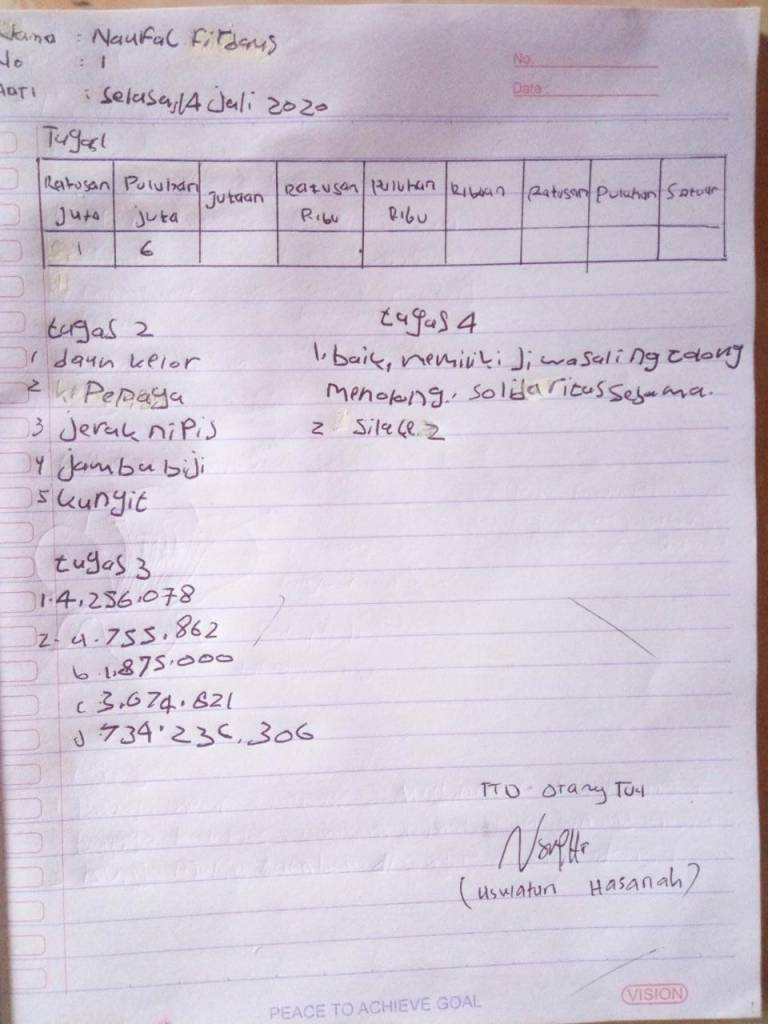 Nama : Naufal Firdaus
No : 1
HARI : selasa, 14 juli 2020
No.
Date:
Tugas 1
Ratusan juta Puluhan juta jutaan Ratusan Ribu Puluhan Ribu Ribuan Ratusan Puluhan Satuan
1 6
tugas 2
1 daun kelor
2 Pepaya
3 jeruk nipis
4 jambu biji
5 kunyit
tugas 4
1. baik, memiliki jiwa saling tolong
menolong. solidaritas sesama.
2 sila ke 2
tugas 3
1. 4.256.078
2. a. 755.862
b. 1.875.000
c 3.674.821
d 734.236.306
TTD Orang Tua
(Uswatun Hasanah)
PEACE TO ACHIEVE GOAL
VISION